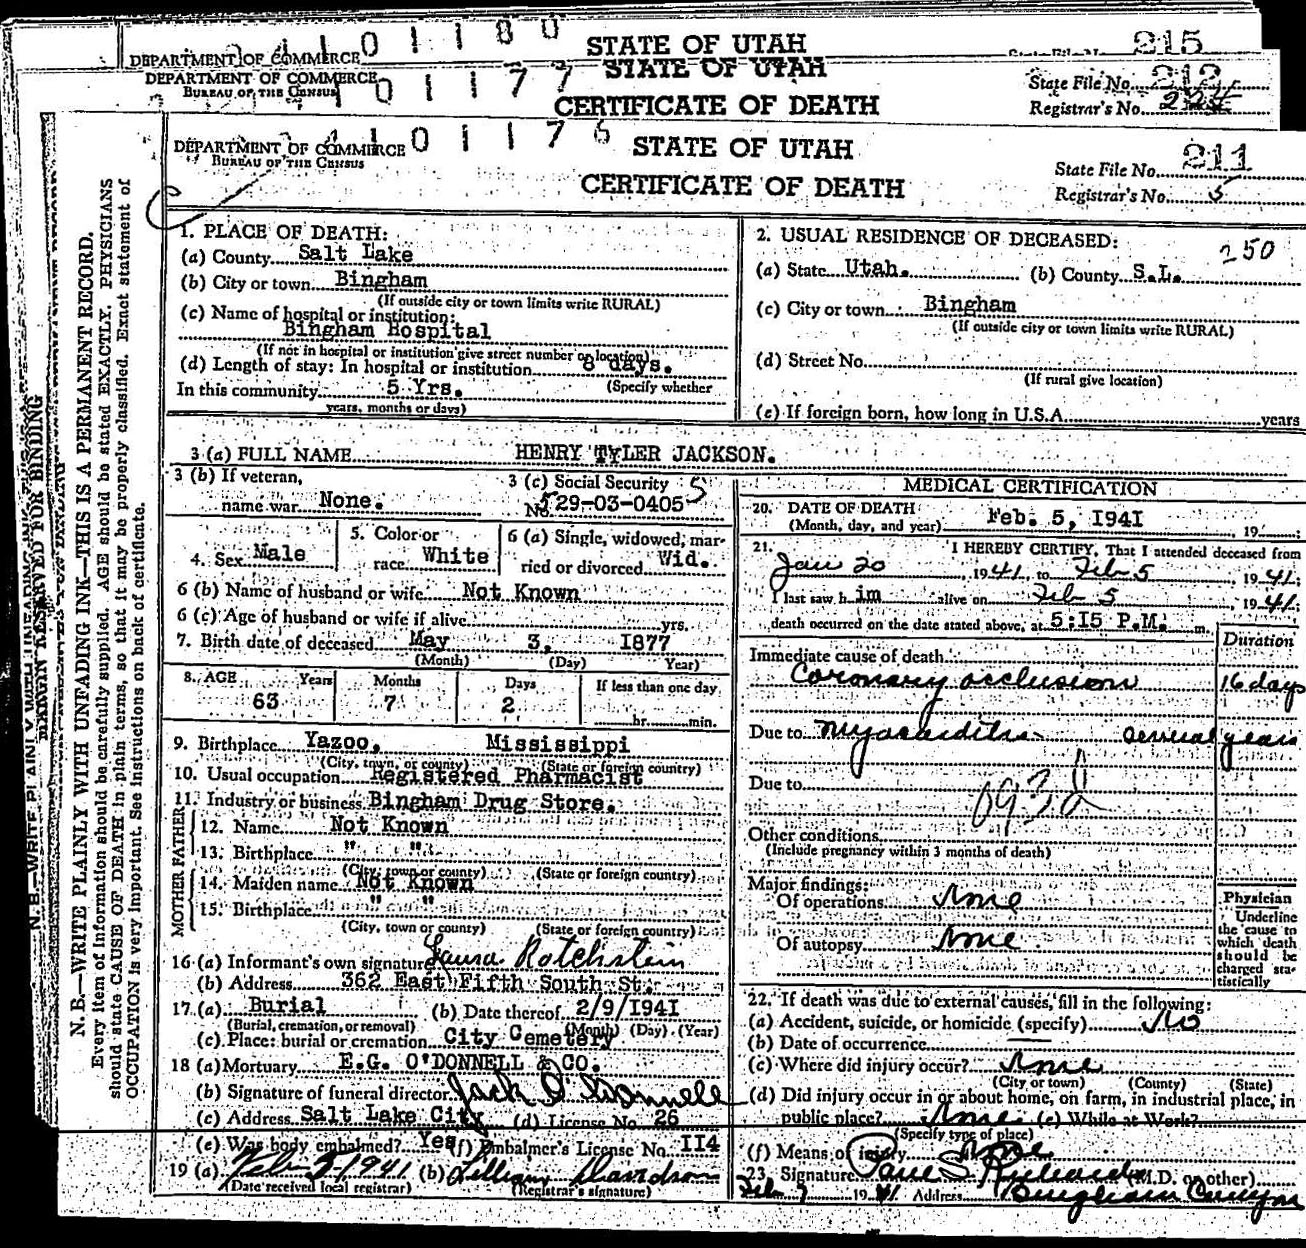 DEPARTMENT OF COMMERCE
STATE OF UTAH
State File No. 215
DEPARTMENT OF COMMERCE
BUREAU OF THE CENSUS
STATE OF UTAH
CERTIFICATE OF DEATH
State File No. 212
Registrar's No.
DEPARTMENT OF COMMERCE
BUREAU OF THE CENSUS
STATE OF UTAH
CERTIFICATE OF DEATH
State File No. 211
Registrar's No. 5
MARGIN RESERVED FOR BINDING
N. B.—WRITE PLAINLY WITH UNFADING INK—THIS IS A PERMANENT RECORD.
Every item of information should be carefully supplied. AGE should be stated EXACTLY. PHYSICIANS
should state CAUSE OF DEATH in plain terms, so that it may be properly classified. Exact statement of
OCCUPATION is very important. See instructions on back of certificate.
1. PLACE OF DEATH:
(a) County Salt Lake
(b) City or town Bingham
(If outside city or town limits write RURAL)
(c) Name of hospital or institution:
Bingham Hospital
(If not in hospital or institution give street number or location)
(d) Length of stay: In hospital or institution 8 days.
(Specify whether
In this community 5 Yrs.
years, months or days)
2. USUAL RESIDENCE OF DECEASED:
250
(a) State Utah. (b) County S.L.
(c) City or town Bingham
(If outside city or town limits write RURAL)
(d) Street No.
(If rural give location)
(e) If foreign born, how long in U.S.A. years
3 (a) FULL NAME HENRY TYLER JACKSON.
3 (b) If veteran,
name war None.
3 (c) Social Security
No. 529-03-0405
4. Sex Male
5. Color or
race White
6 (a) Single, widowed, mar-
ried or divorced Wid.
6 (b) Name of husband or wife Not Known
6 (c) Age of husband or wife if alive yrs.
7. Birth date of deceased May 3, 1877
(Month) (Day) Year)
8. AGE Years Months Days If less than one day
63 7 2 hr. min.
9. Birthplace Yazoo, Mississippi
(City, town, or county) (State or foreign country)
10. Usual occupation Registered Pharmacist
11. Industry or business Bingham Drug Store.
FATHER
12. Name Not Known
13. Birthplace " "
(City, town or county) (State or foreign country)
MOTHER
14. Maiden name Not Known
15. Birthplace " "
(City, town or county) (State or foreign country)
16 (a) Informant's own signature Laura Rotchstein
(b) Address 362 East Fifth South St.
17. (a) Burial (b) Date thereof 2/9/1941
(Burial, cremation, or removal) (Month) (Day) (Year)
(c) Place: burial or cremation City Cemetery
18 (a) Mortuary E.G. O'DONNELL & CO.
(b) Signature of funeral director Jack O'Donnell
(c) Address Salt Lake City (d) License No. 26
(e) Was body embalmed? Yes (f) Embalmer's License No. 114
19 (a) Feb 1941 (b) Lillian Davidson
(Date received local registrar) (Registrar's signature)
MEDICAL CERTIFICATION
20. DATE OF DEATH
(Month, day, and year) Feb. 5, 1941 19
21. I HEREBY CERTIFY, That I attended deceased from
Jan 20, 1941, to Feb 5, 1941;
I last saw him alive on Feb 5, 1941;
death occurred on the date stated above, at 5:15 P.M. m.
Duration
Immediate cause of death
Coronary occlusion 16 days
Due to Myocarditis several years
Due to
Other conditions
(Include pregnancy within 3 months of death)
Major findings:
Of operations None
Of autopsy None
Physician
Underline
the cause to
which death
should be
charged sta-
tistically
22. If death was due to external causes, fill in the following:
(a) Accident, suicide, or homicide (specify) No
(b) Date of occurrence
(c) Where did injury occur? None
(City or town) (County) (State)
(d) Did injury occur in or about home, on farm, in industrial place, in
public place? None (e) While at Work?
(Specify type of place)
(f) Means of injury None
23. Signature Paul S. Richards (M.D. or other)
Feb 7 1941 Address Bingham Canyon